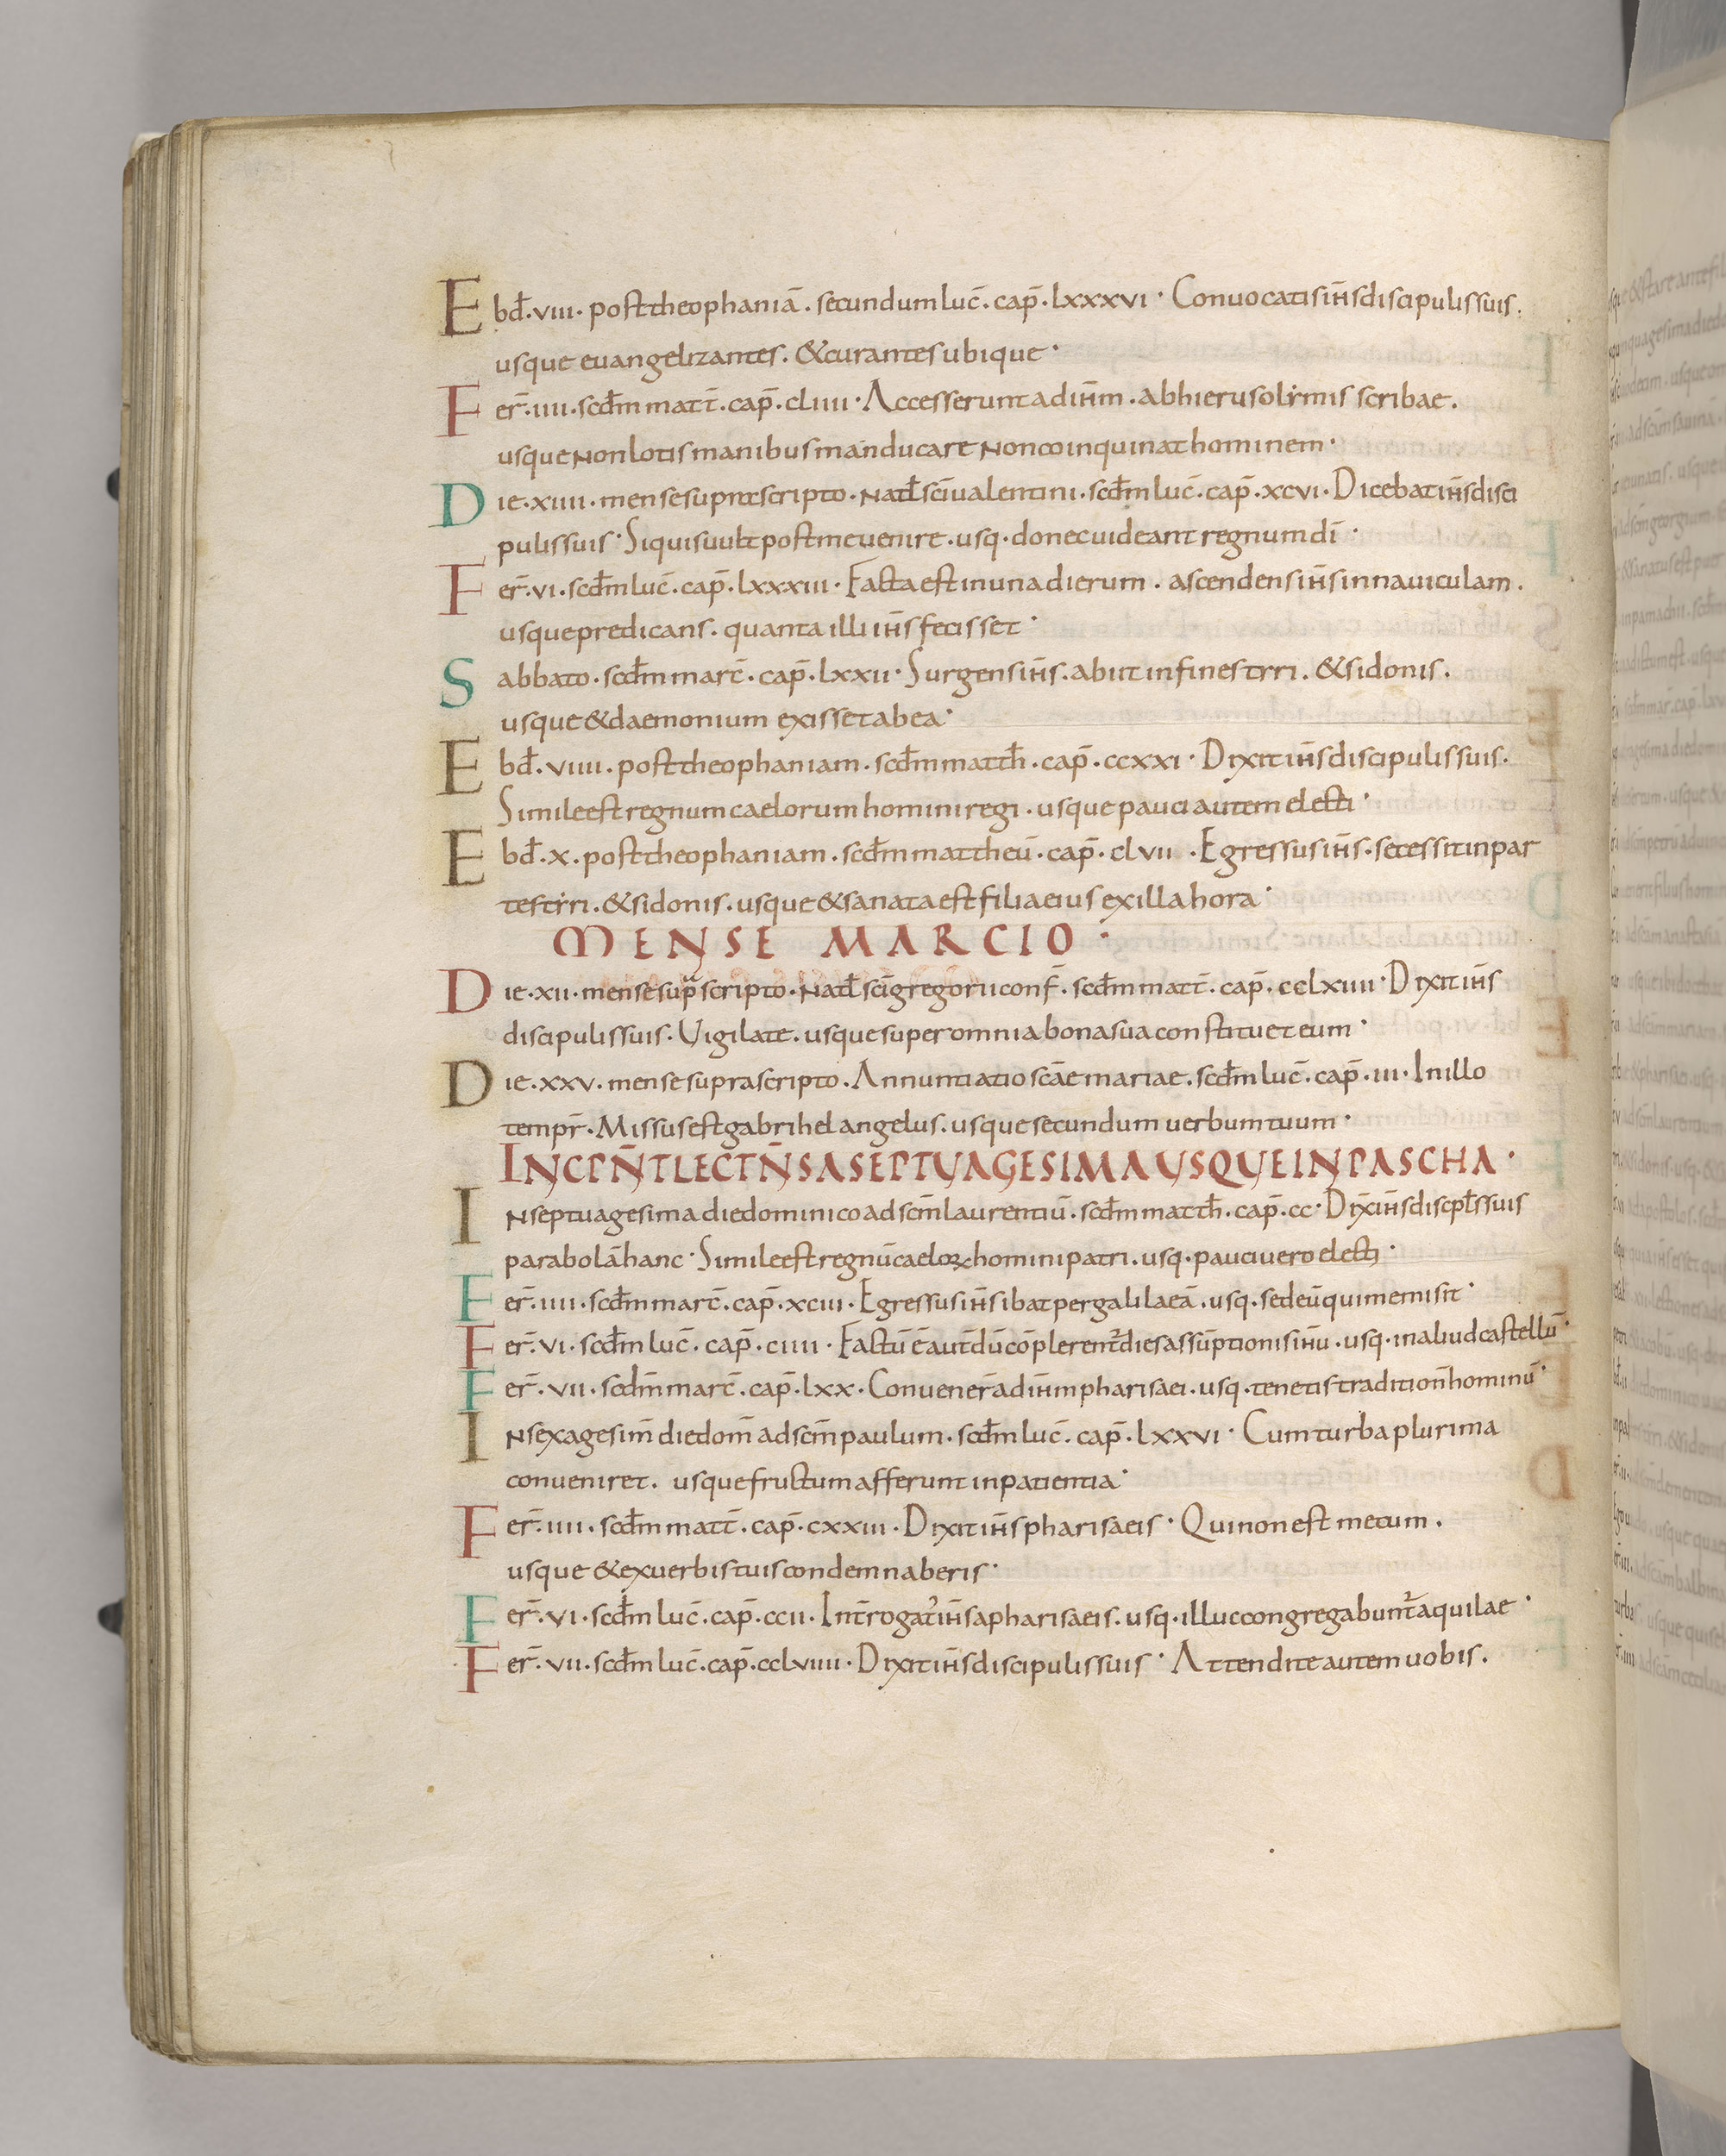 Ebd̄. viii. post theophaniā. secundum luc̄. cap̄. lxxxvi. Conuocatis ih̄s discipulis suis.
usque euangelizantes. & curantes ubique.
Fer̄. iiii. scd̄m matt̄. cap̄. cliiii. Accesserunt ad ih̄m. ab hierusolẏmis scribae.
usque non lotis manibus manducare non coinquinat hominem.
Die. xiiii. mense supra scripto. natl̄ sc̄i ualentini. scd̄m luc̄. cap̄. xcvi. Dicebat ih̄s disci
pulis suis. Si quis uult post me uenire. usq. donec uideant regnum dī.
Fer̄. vi. scd̄m luc̄. cap̄. lxxxiii. Facta est in una dierum. ascendens ih̄s in nauiculam.
usque predicans. quanta illi ih̄s fecisset.
Sabbato. scd̄m marc̄. cap̄. lxxii. Surgens ih̄s. abiit in fines tyri. & sidonis.
usque & daemonium exisset ab ea.
Ebd̄. viiii. post theophaniam. scd̄m matth̄. cap̄. ccxxi. Dixit ih̄s discipulis suis.
Simile est regnum caelorum homini regi. usque pauci autem electi.
Ebd̄. x. post theophaniam. scd̄m mattheū. cap̄. clvii. Egressus ih̄s. secessit in par
tes tẏri. & sidonis. usque & sanata est filia eius ex illa hora.
MENSE MARCIO.
Die. xii. mense sup̄scripto. natl̄ sc̄i gregorii conf̄. scd̄m matt̄. cap̄. cclxiiii. Dixit ih̄s
discipulis suis. Uigilate. usque super omnia bona sua constituet eum.
Die. xxv. mense suprascripto. Annuntiatio sc̄ae mariae. scd̄m luc̄. cap̄. iii. In illo
tempr̄. Missus est gabrihel angelus. usque secundum uerbum tuum.
INCPN̄T LECTN̄S A SEPTUAGESIMA USQUE IN PASCHA.
In septuagesima die dominico ad sc̄m laurentiū. scd̄m matth̄. cap̄. cc. Dix̄ ih̄s discipl̄s suis
parabolā hanc. Simile est regnū caeloꝝ homini patri. usq. pauci uero electi.
Fer̄. iiii. scd̄m marc̄. cap̄. xciii. Egressus ih̄s ibat per galilaeā. usq. sed eū qui me misit.
Fer̄. vi. scd̄m luc̄. cap̄. ciiii. Factū ē aut̄ dū cōplerent̄ dies assūptionis ih̄u. usq. in aliud castellū.
Fer̄. vii. scd̄m marc̄. cap̄. lxx. Conuener̄ ad ih̄m pharisaei. usq. tenetis tradition̄ hominū.
In sexagesim̄ die dom̄ ad sc̄m paulum. scd̄m luc̄. cap̄. lxxvi. Cum turba plurima
conueniret. usque fructum afferunt in patientia.
Fer̄. iiii. scd̄m matt̄. cap̄. cxxiii. Dixit ih̄s pharisaeis. Qui non est mecum.
usque & ex uerbis tuis condemnaberis.
Fer̄. vi. scd̄m luc̄. cap̄. ccii. Int̄rogat̄ ih̄s a pharisaeis. usq. illuc congregabunt̄ aquilae.
Fer̄. vii. scd̄m luc̄. cap̄. cclviiii. Dixit ih̄s discipulis suis. Attendite autem uobis.